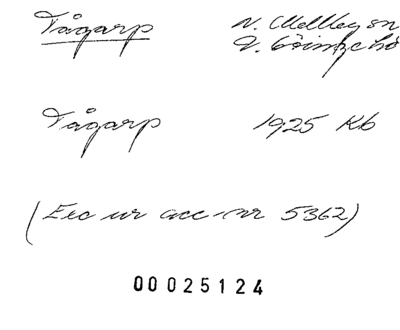 Tågarp
N. Mellby sn
V. Göinge hd
Tågarp 1925 Kb
(Exc ur acc-nr 5362)
00025124